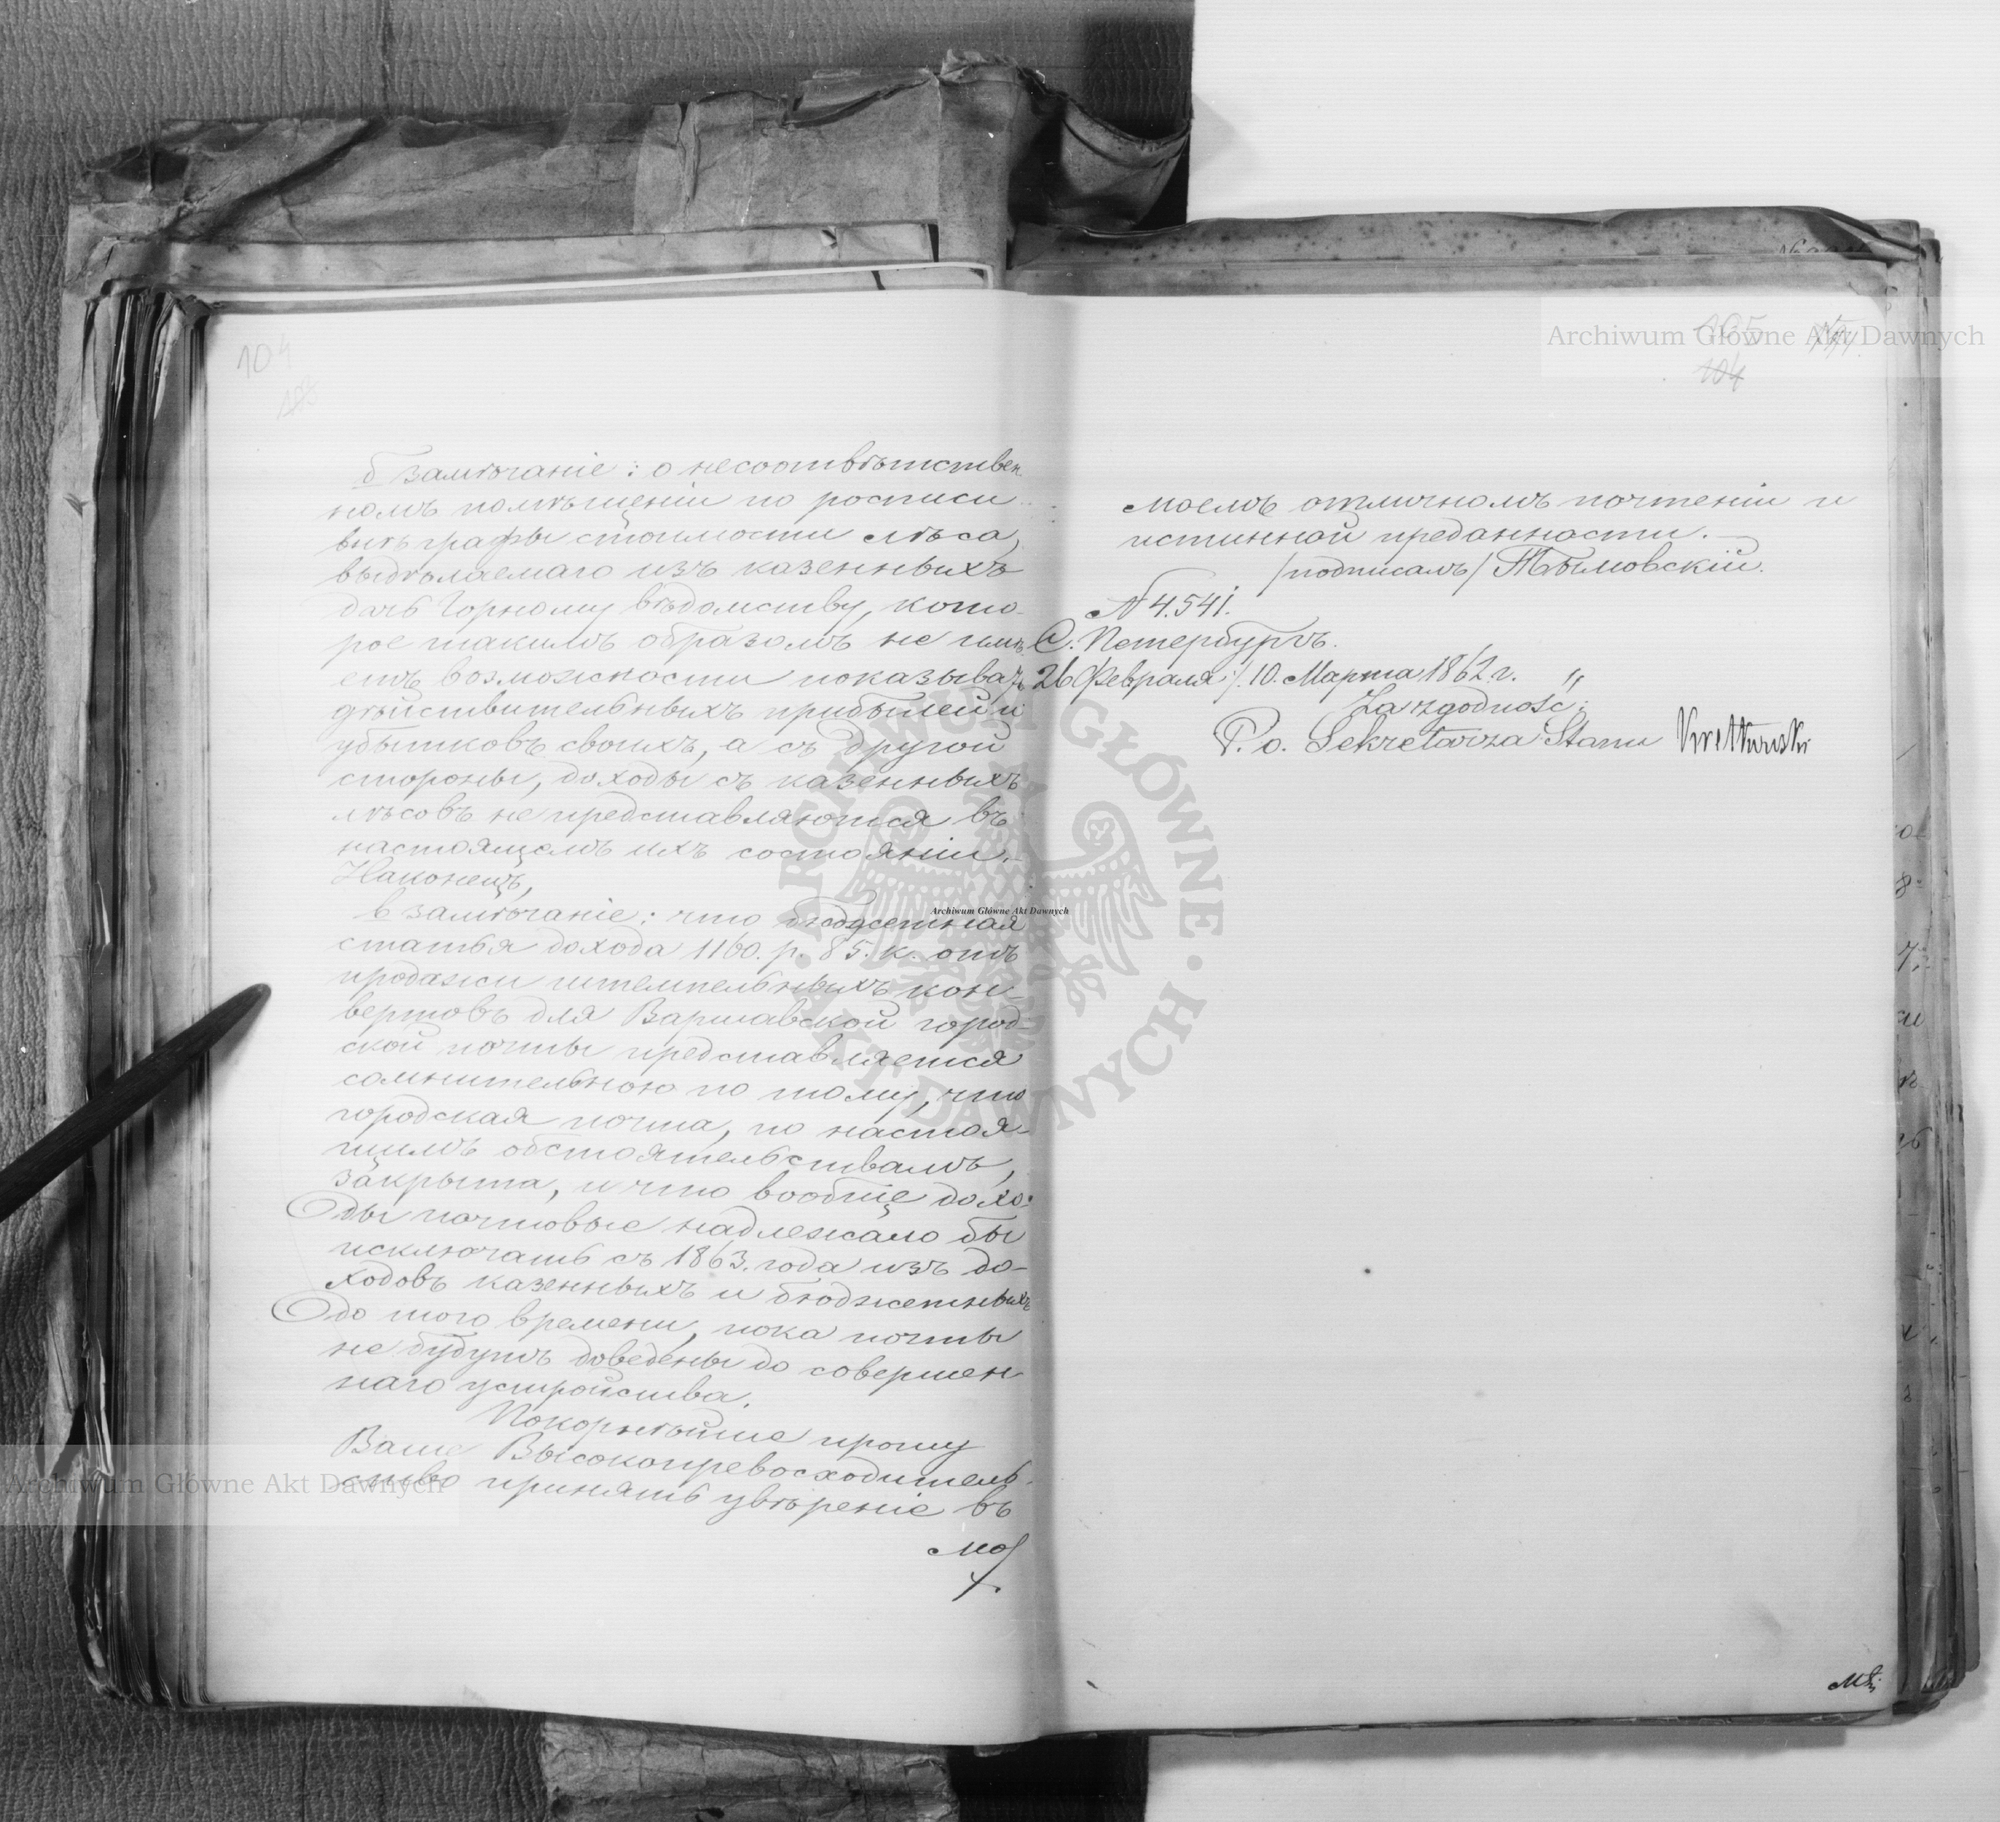 104
б замѣчаніе: о несоотвѣтствен
номъ помѣщеніи по росписи
внѣ графы стоимости лѣса,
выдѣляемаго изъ казенныхъ
дачъ Горному вѣдомству, кото-
рое такимъ образомъ не имѣ-
етъ возможности показывать
дѣйствительныхъ прибылей и
убытковъ своихъ, а съ другой
стороны, доходы съ казенныхъ
лѣсовъ не представляются въ
настоящемъ ихъ состояніи.
Наконецъ,
в замѣчаніе: что бюджетная
статья дохода 1160. р. 85. к. отъ
продажи штемпельныхъ кон-
вертовъ для Варшавской город-
ской почты представляется
сомнительною по тому, что
городская почта, по настоя-
щимъ обстоятельствамъ,
закрыта, и что вообще дохо-
ды почтовые надлежало бы
исключать съ 1863. года изъ до-
ходовъ казенныхъ и бюджетныхъ
до того времени, пока почты
не будутъ доведены до совершен
наго устройства.
Покорнѣйше прошу
Ваше Высокопревосходитель-
ство принять увѣреніе въ
мо
105
104
моемъ отличномъ почтеніи и
истинной преданности.
/подписалъ/ Тымовскій.
N 4.541.
С. Петербургъ.
26 Февраля /. 10. Марта 1862. г. "
Za zgodność:
P. o. Sekretarza Stanu
Archiwum Główne Akt Dawnych
Archiwum Główne Akt Dawnych
Archiwum Główne Akt Dawnych
ARCHIWUM GŁÓWNE · AKT DAWNYCH ·